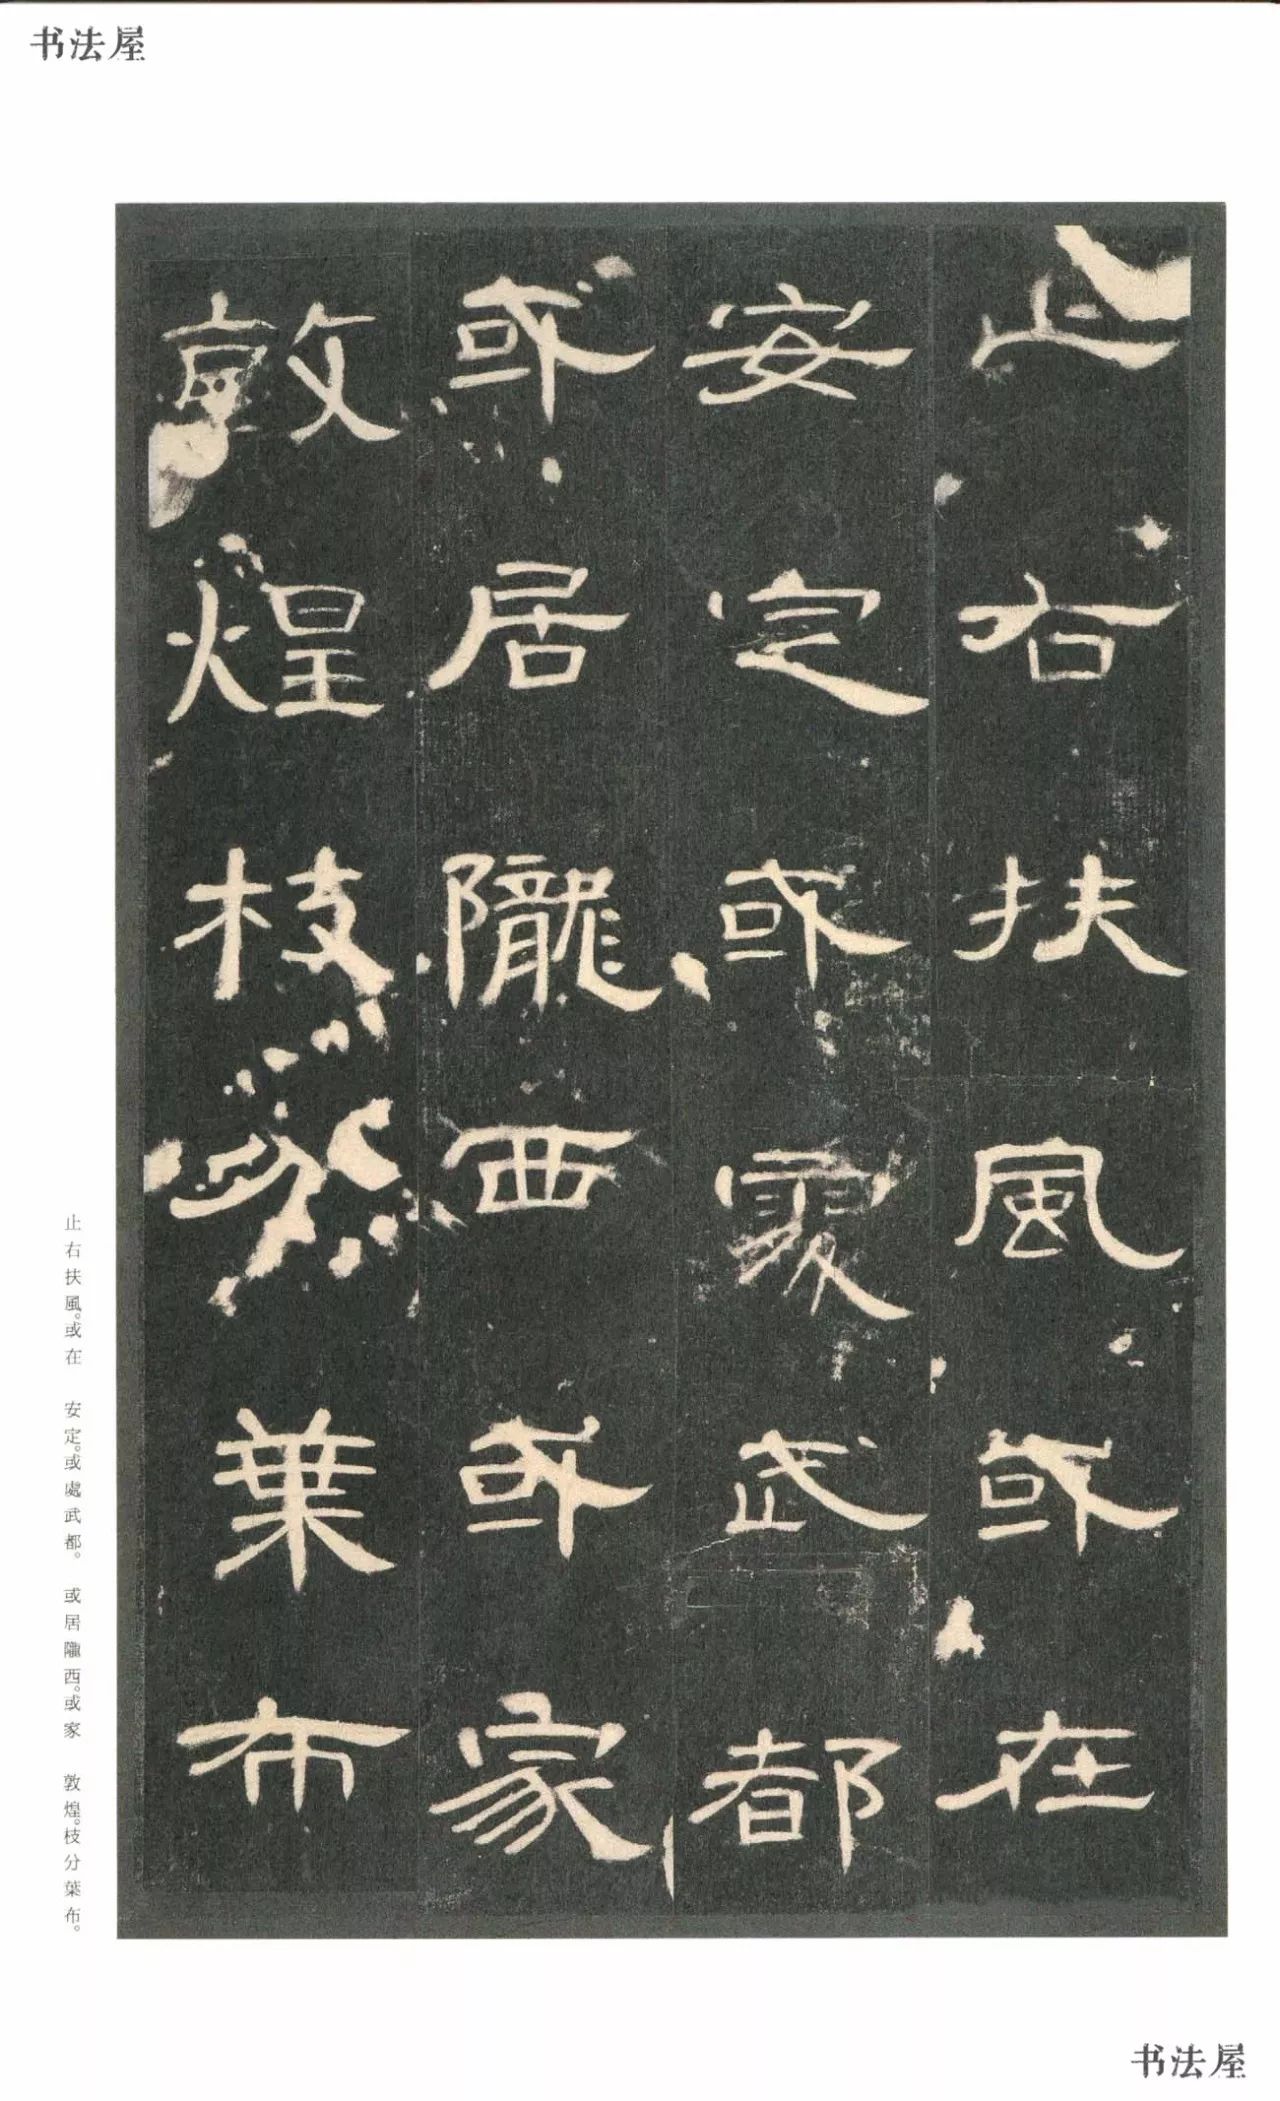 书法屋
止右扶風或在
安定或處武都
或居隴西或家
敦煌枝分葉布
止右扶風。或在　安定。或處武都。　或居隴西。或家　敦煌。枝分葉布。
书法屋